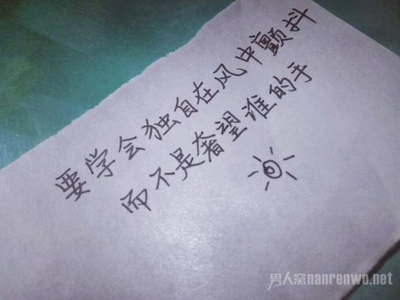 要学会独自在风中颤抖
而不是奢望谁的手
男人窝nanrenwo.net